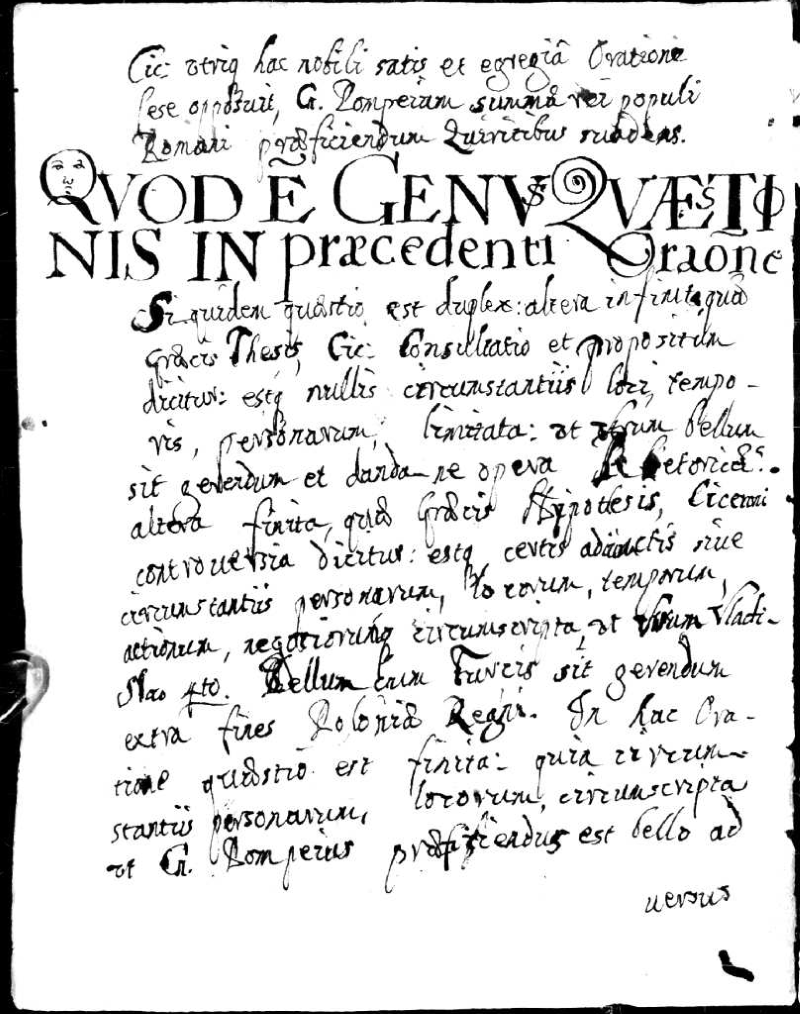 Cic: vtriq hac nobili satis et egregiâ Oratione
sese opposuit, G. Pompeium summæ rei populi
Romani præficiendum Quiritibus suadens.
QVOD Ē GENVS QVÆSTIO
NIS IN præcedenti Oraōne
Siquidem quæstio est duplex: altera infinita, quæ
græcis Thesis, Cic: Consultatio et propositum
dicitur: estq nullis circumstantiis loci, tempo-
ris, personarum, limitata: vt vtrum bellum
sit gerendum et danda ne opera Rhetoricæ.
altera finita, quæ Græcis Hipothesis, Ciceroni
controuersia dicitur: estq certis adiunctis siue
circumstantiis personarum, locorum, temporum,
actionum, negotiorumq circumscripta, vt vtrum Vladi-
slao 4to. Bellum cum Turcis sit gerendum
extra fines Poloniæ Regni. In hac Ora-
tione quæstio est finita: quia circum-
stantiis personarum, locorum, circumscripta
vt G. Pompeius præficiendus est bello ad
uersus